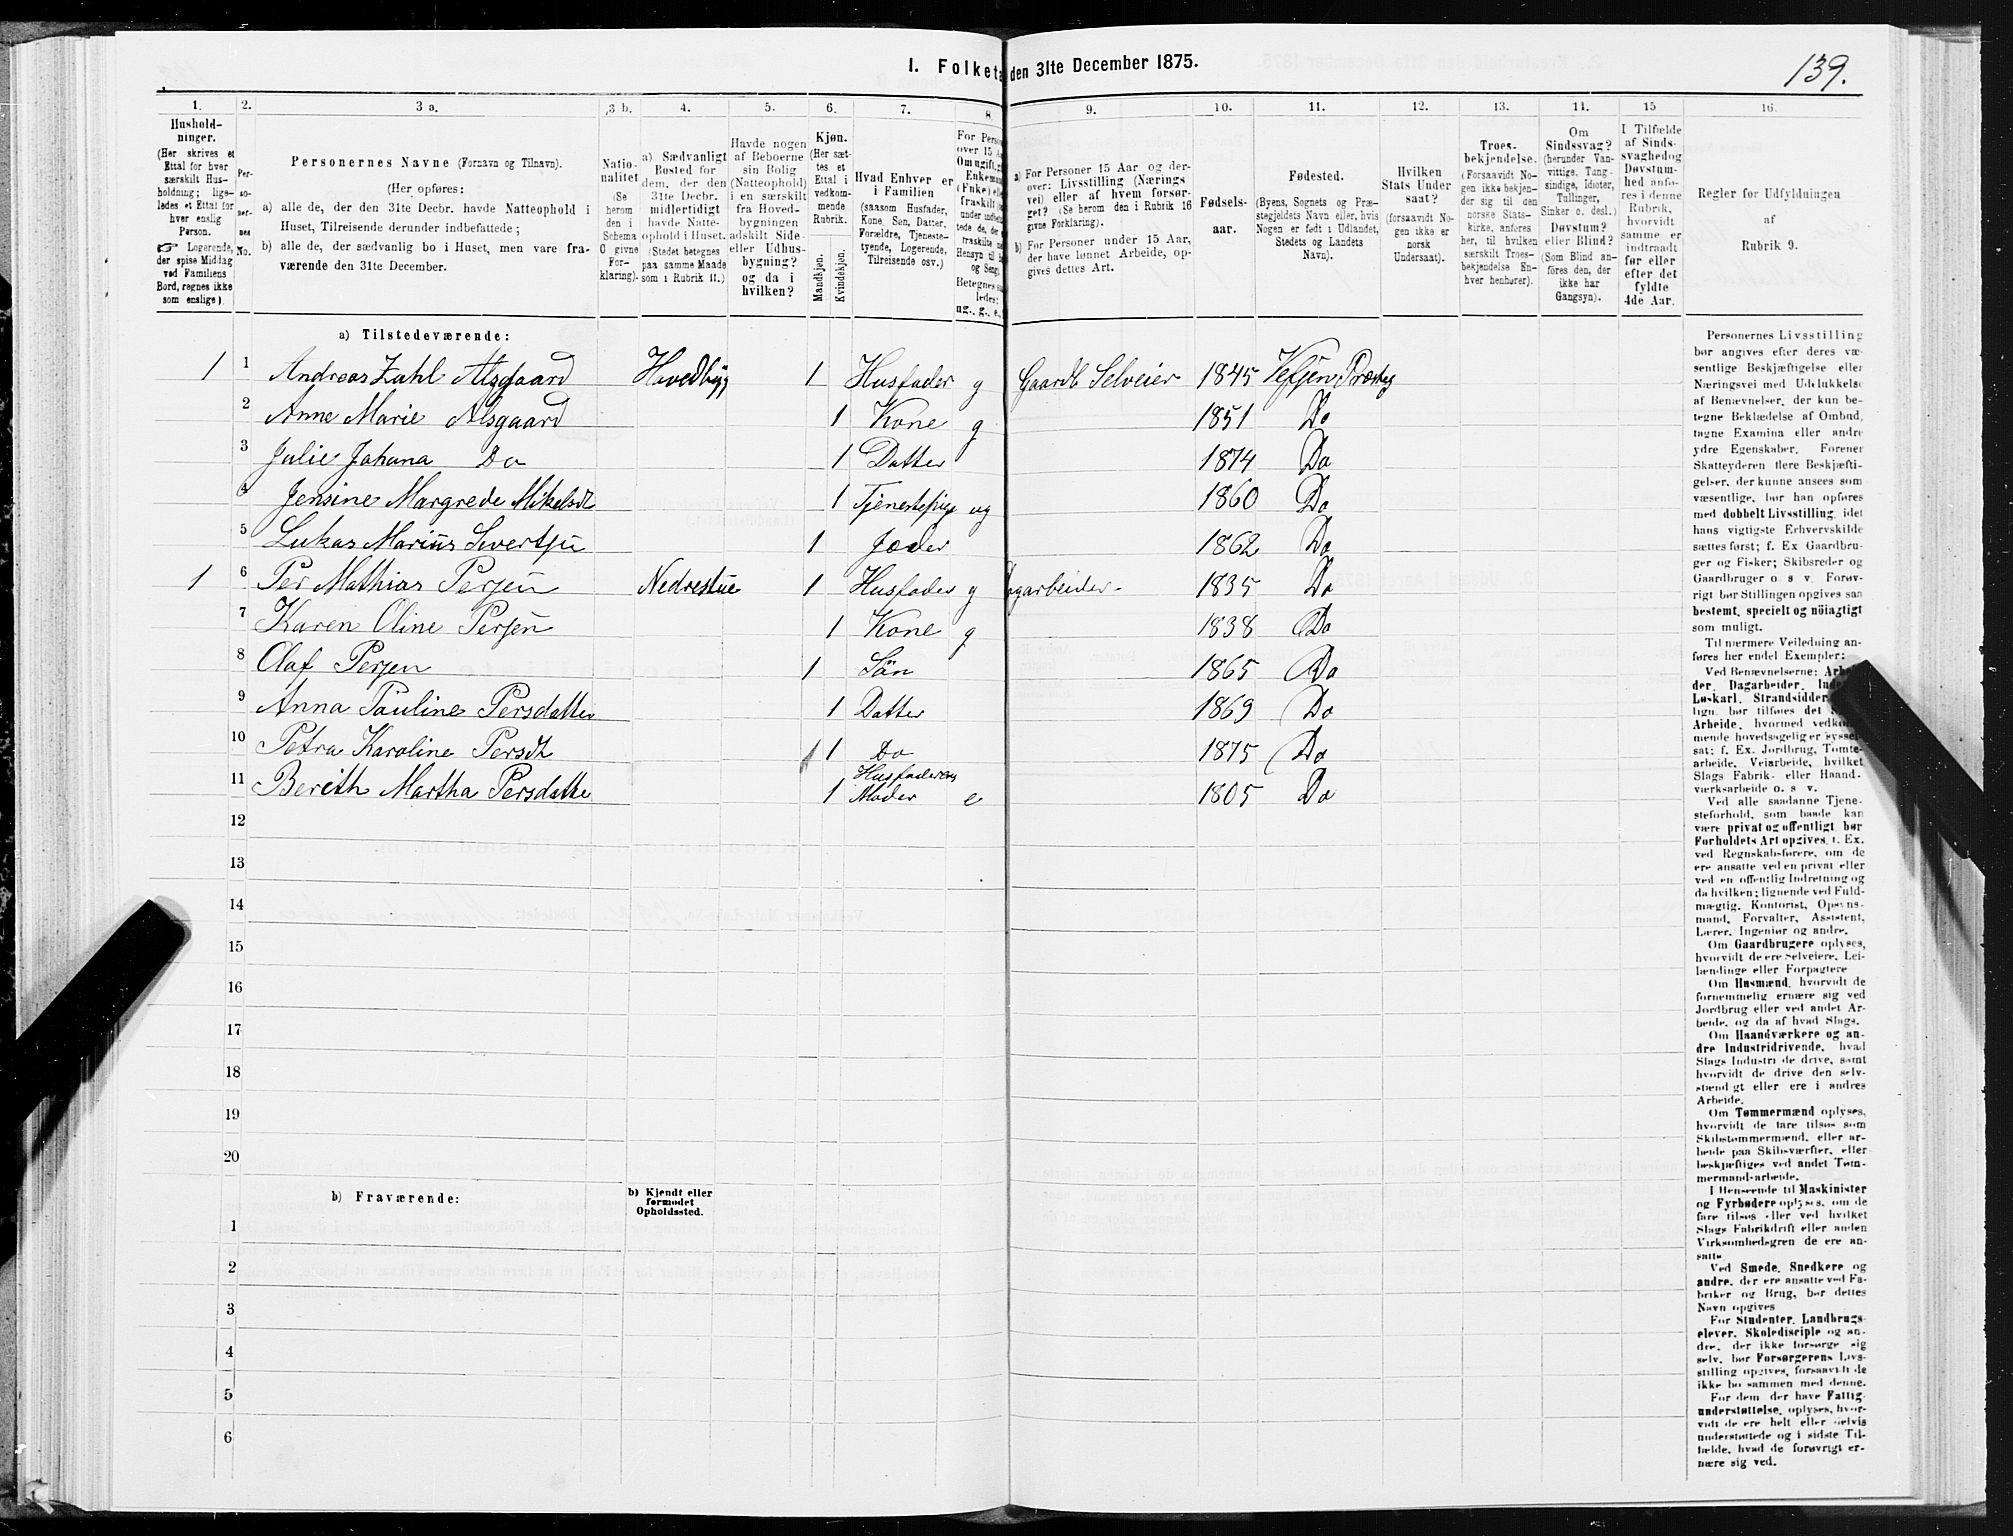 I. Folketæ den 31te December 1875.
139.
1. 2. 3 a. 3 b. 4. 5. 6. 7. 8. 9. 10. 11. 12. 13. 14. 15 16.
Hushold-
ninger.
(Her skrives et
Ettal for hver
særskilt Hus-
holdning; lige-
ledes et Ettal for
hver enslig
Person.
☞ Logerende,
der spise Middag
ved Familiens
Bord, regnes ikke
som enslige).
Per-
so-
ner-
nes
No.
Personernes Navne (Fornavn og Tilnavn).
(Her opføres:
a) alle de, der den 31te Decbr. havde Natteophold i
Huset, Tilreisende derunder indbefattede;
b) alle de, der sædvanlig bo i Huset, men vare fra-
værende den 31te December.
Natio-
nalitet
(Se
herom
den i
Schema
O givne
For-
klaring).
a) Sædvanligt
Bosted for
dem, der den
31te Decbr.
midlertidigt
havde Natte-
ophold i Huset.
(Stedet betegnes
paa samme Maade
som i Rubrik 11.)
Havde nogen
af Beboerne
sin Bolig
(Natteophold)
i en særskilt
fra Hoved-
bygningen
adskilt Side-
eller Udhus-
bygning?
og da i
hvilken?
Kjøn.
(Her sæt-
tes et
Ettal i
vedkom-
mende
Rubrik.
Mandkjøn.
Kvindekjøn.
Hvad Enhver er
i Familien
(saasom Husfader,
Kone, Søn, Datter,
Forældre, Tjeneste-
tyende, Logerende,
Tilreisende osv.)
For Perso
over 15 A
Om ugift, g
Enkeman
(Enke) el
fraskilt
under indbe
tede de, der
fraskilte
Hensyn til B
og Seng
Betegnes sa
ledes:
ug., g., e.,
a) For Personer 15 Aar og der-
over: Livsstilling (Nærings
vei) eller af hvem forsør-
get? (Se herom den i Rubrik 16
givne Forklaring).
b) For Personer under 15 Aar,
der have lønnet Arbeide, op-
gives dettes Art.
Fødsels-
aar.
Fødested.
(Byens, Sognets og Præ-
stegjeldets Navn eller, hvis
Nogen er født i Udlandet,
Stedets og Landets
Navn).
Hvilken
Stats Under
saat?
(forsaavidt No-
gen ikke er
norsk
Undersaat).
Troes-
bekjendelse.
(Forsaavidt No-
gen ikke bekjen-
der sig til den
norske Stats-
kirke, anføres
her, til hvilken
særskilt Troes-
bekjendelse En-
hver henhører).
Om
Sindssvag?
(herunder Van-
vittige, Tung-
sindige, Idioter,
Tullinger,
Sinker o. desl.)
Døvstum?
eller Blind?
(Som Blind an-
føres den, der
ikke har
Gangsyn).
I Tilfælde
af Sinds-
svaghed og
Døvstum-
hed anfø-
res i denne
Rubrik,
hvorvidt
samme er
indtraadt
før eller
efter det
fyldte
4de Aar.
Regler for Udfyldningen
af
Rubrik 9.
a) Tilstedeværende:
1 1 Andreas Zahl Alsgaard Hovedbyg 1 Husfader g Gaardb Selveier 1845 Vefsen Præsteg
2 Anne Marie Alsgaard 1 Kone g 1851 Do
3 Julie Johana Do 1 Datter 1874 Do
4 Jensine Margrede Mikelsdt 1 Tjenestepige ug 1860 Do
5 Lukas Marius Sivertsen 1 1862 Do
1 6 Per Mathias Persen Nedrestue 1 Husfader g agarbeider 1835 Do
7 Karen Oline Persen 1 Kone g 1838 Do
8 Olaf Persen 1 Sön 1865 Do
9 Anna Pauline Persdatter 1 Datter 1869 Do
10 Petra Karoline Persdt 1 1 Do 1875 Do
11 Berith Martha Persdatte 1 Husfaderens Moder e 1805 Do
12
13
14
15
16
17
18
19
20
b) Fraværende:
b) Kjendt eller
formodet
Opholdssted.
1
2
3
4
5
6
Personernes Livsstilling
bør angives efter deres væ-
sentlige Beskjæftigelse eller
Næringsvei med Udelukkelse
af Benævnelser, der kun be-
tegne Beklædelse af Ombud,
tagne Examina eller andre
ydre Egenskaber. Forener
Skatteyderen flere Beskjæfti-
gelser, der kunne ansees som
væsentlige, bør han opføres
med dobbelt Livsstilling, idet
hans vigtigste Erhvervskilde
sættes først; f. Ex Gaardbru-
ger og Fisker; Skibsreder og
Gaardbruger o. s v. Forøv-
rigt bør Stillingen opgives saa
bestemt, specielt og nöiagtigt
som muligt.
Til nærmere Veiledning an-
føres her endel Exempler:
Ved Benævnelserne: Arbei
der, Dagarbeider, Inder
Løskarl, Strandsidder
lign. bør tilføies det
Arbeide, hvormed vedkom
mende hovedsagelig er syssel-
sat; f. Ex. Jordbrug, Tomte-
arbeide, Veiarbeide, hvilket
Slags Fabrik- eller Haand-
værksarbeide o. s v.
Ved alle saadanne Tjene-
steforhold, som baade kan
være privat og offentligt, bør
Forholdets Art opgives, f. Ex.
ved Regnskabsførere, om de
ere ansatte ved en privat eller
ved en offentlig Indretning og
da hvilken; lignende ved Fuld-
mægtig, Kontorist, Opsyns-
mand, Forvalter, Assistent,
Lærer, Ingeniør og andre.
Om Gaardbrugere oplyses,
hvorvidt de ere Selveiere, Lei-
lændinge eller Forpagtere
Om Husmænd, hvorvidt de
fornemmelig ernære sig ved
Jordbrug eller ved andet Ar-
beide, og da af hvad Slags.
Om Haandværkere og an-
dre Industridrivende, hvad
Slags Industri de drive, samt
hvorvidt de drive den selv-
stændigt eller ere i andres
Arbeide.
Om Tømmermænd oplyses,
hvorvidt de fare tilsøs som
Skibstømmermænd, eller ar-
beide paa Skibsværfter, eller
beskjæftiges ved andet Tøm-
mermandsarbeide.
I Henseende til Maskinister
og Fyrbødere oplyses, om de
fare tilsøs eller ved hvilket
Slags Fabrikdrift eller anden
Virksomhedsgren de ere an-
satte.
Ved Smede, Snedkere og
andre, der ere ansatte ved Fa-
briker og Brug, bør dettes
Navn opgives
For Studenter, Landbrugs-
elever, Skoledisciple og an-
dre, der ikke forsørge sig
selv, bør Forsørgerens Livs-
stilling opgives, forsaavidt de
ikke bo sammen med denne.
For dem, der have Fattig-
understøttelse, oplyses, hvor-
vidt de ere helt eller delvis
understøttede og i sidste Til-
fælde, hvad de forøvrigt er-
nære sig ved.